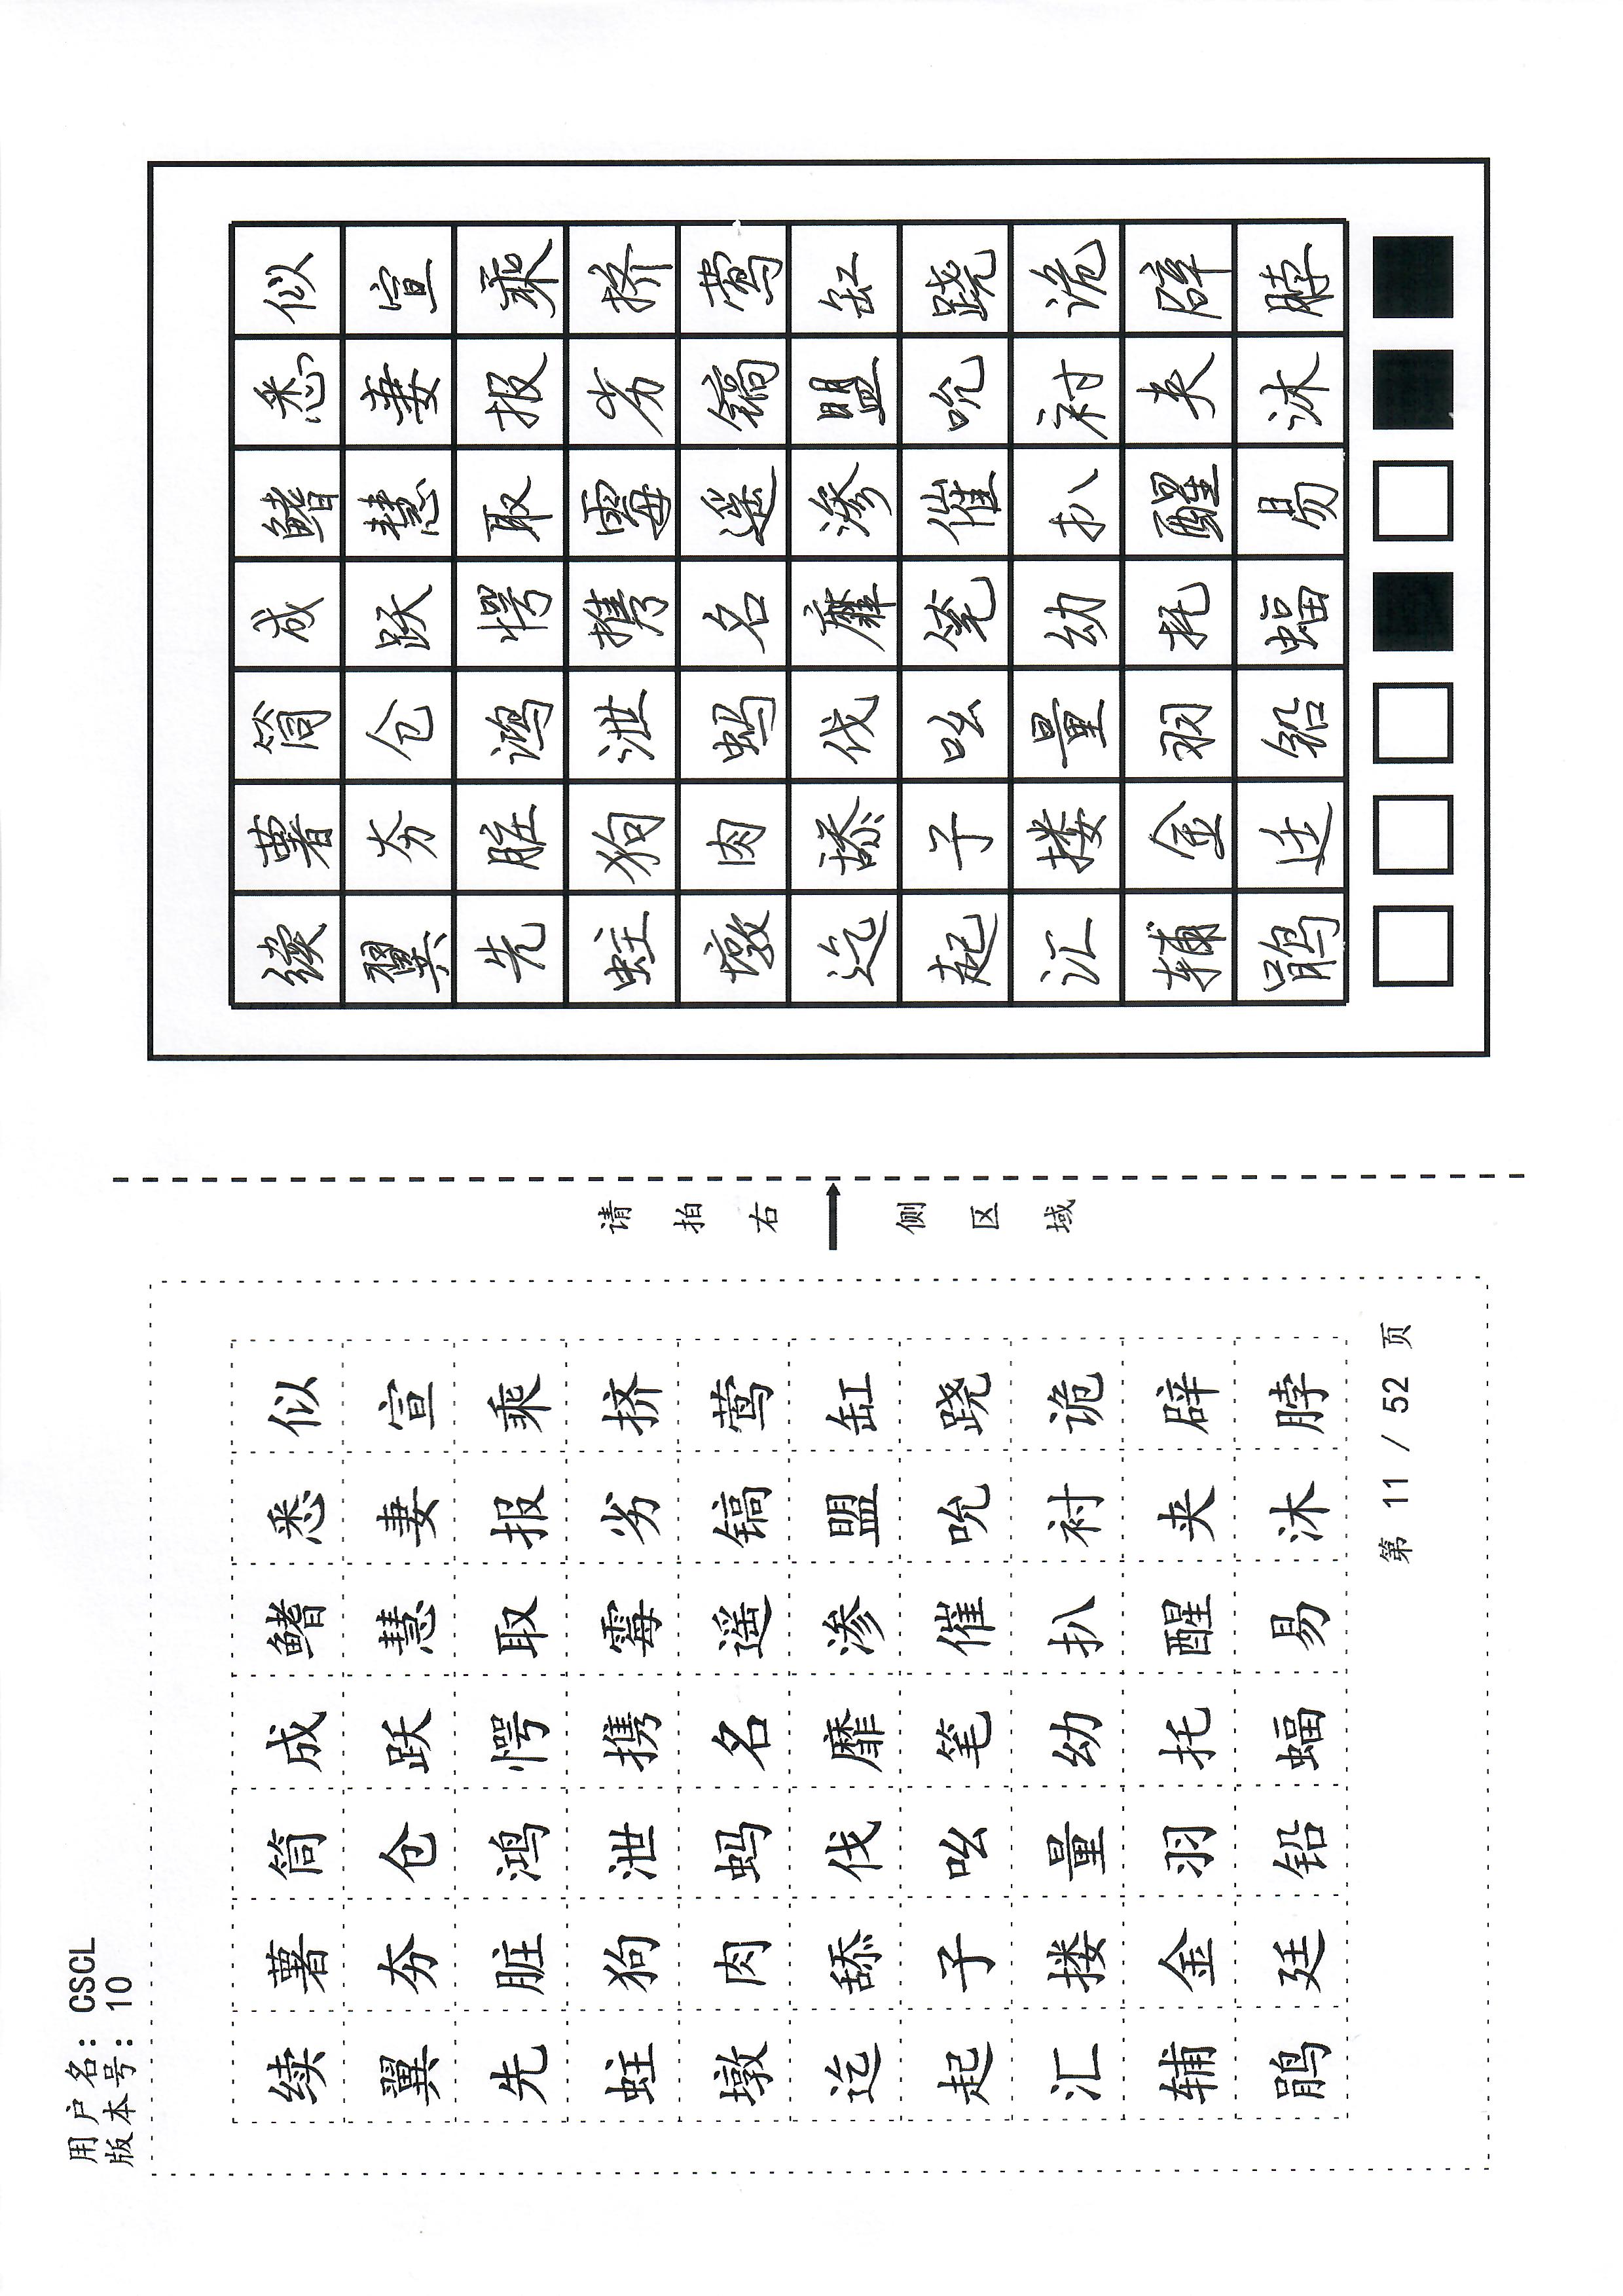 用户名: CSCL
版本号: 10
续 薯 筒 成 鳍 悉 似
翼 夯 仓 跃 慧 妻 宣
先 脏 鸿 愕 取 报 乘
蛀 狗 泄 携 霉 劣 挤
墩 肉 蚂 名 遥 镐 莺
迄 舔 伐 靡 渗 盟 缸
起 子 吆 笔 催 吮 跷
汇 搂 量 幼 扒 衬 诡
辅 金 羽 托 醒 夹 辟
鹃 廷 铅 蝠 易 沐 脖
第 11 / 52 页
请拍右侧区域
续 薯 筒 成 鳍 悉 似
翼 夯 仓 跃 慧 妻 宣
先 脏 鸿 愕 取 报 乘
蛀 狗 泄 携 霉 劣 挤
墩 肉 蚂 名 遥 镐 莺
迄 舔 伐 靡 渗 盟 缸
起 子 吆 笔 催 吮 跷
汇 搂 量 幼 扒 衬 诡
辅 金 羽 托 醒 夹 辟
鹃 廷 铅 蝠 易 沐 脖